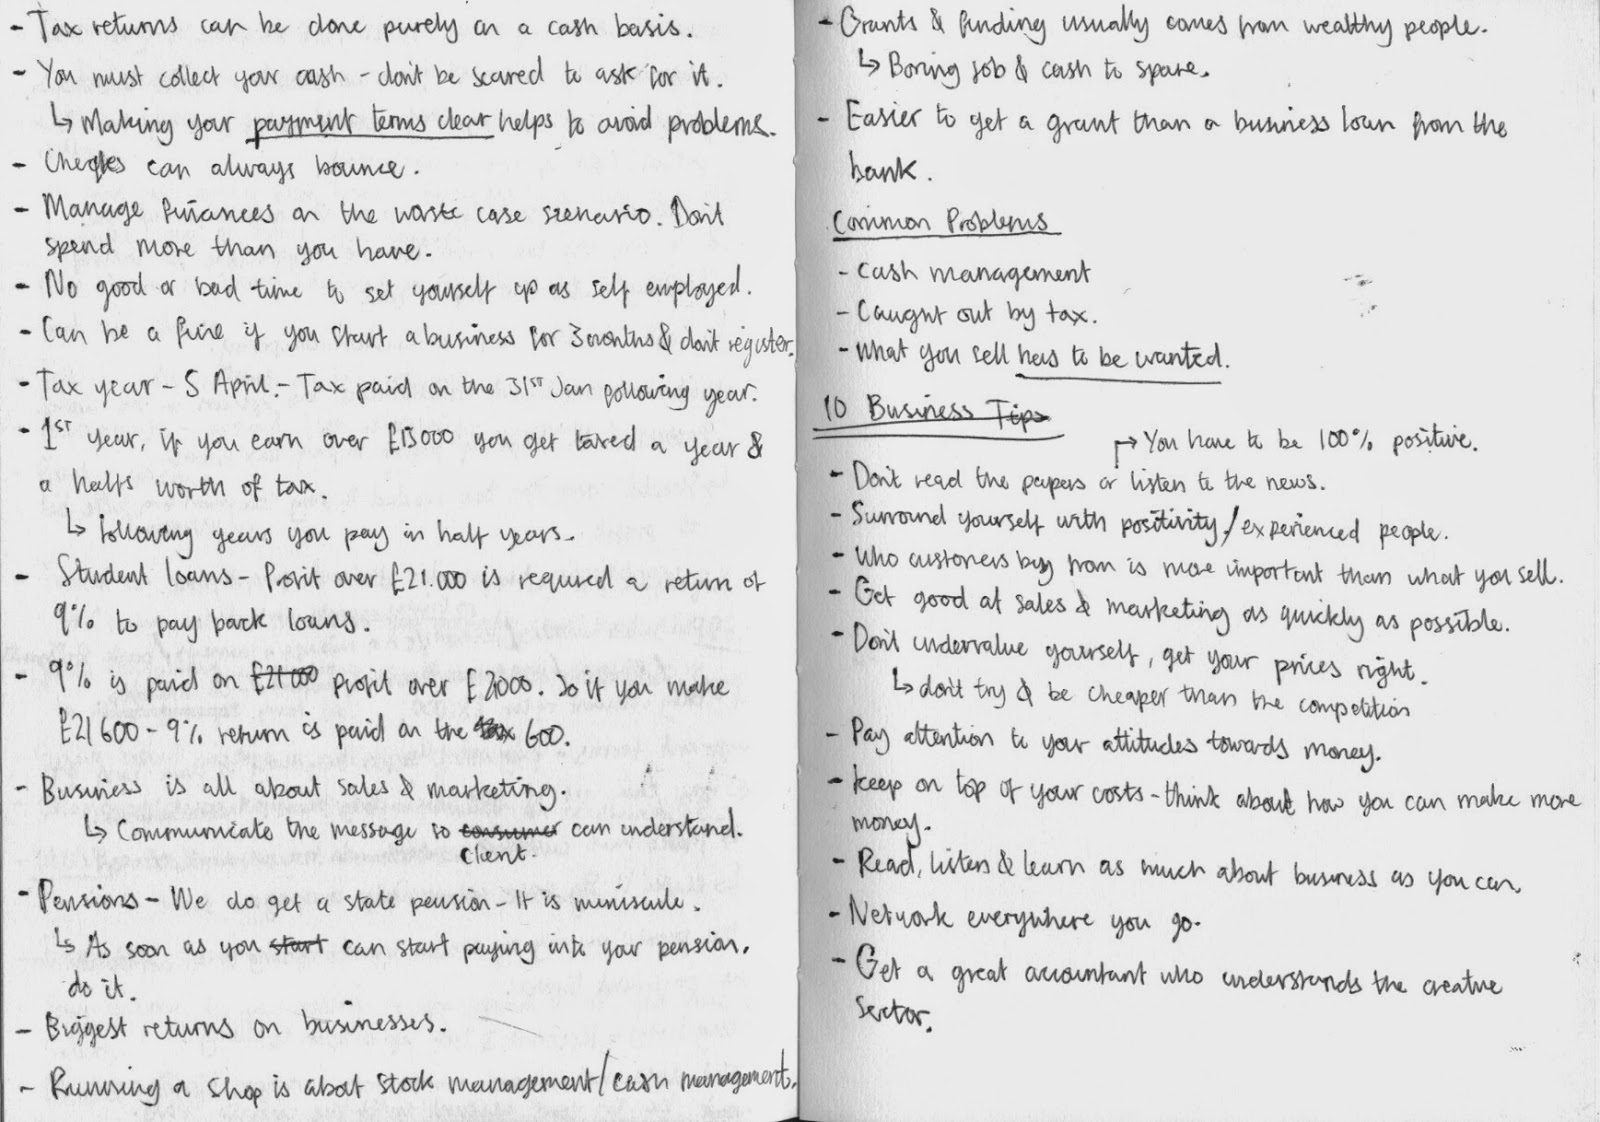 - Tax returns can be done purely on a cash basis.
- You must collect your cash - don't be scared to ask for it.
↳ Making your payment terms clear helps to avoid problems.
- Cheques can always bounce.
- Manage finances on the worste case szenario. Don't
spend more than you have.
- No good or bad time to set yourself up as self employed.
- Can be a fine if you start a business for 3 months & don't register.
- Tax year - 5 April. - Tax paid on the 31st Jan following year.
- 1st year, if you earn over you get taxed a year &
a halfs worth of tax.
↳ following years you pay in half years.
- Student loans - Profit over £21.000 is required a return of
9% to pay back loans.
- 9% is paid on £21000 profit over £21000. So if you make
£21600 - 9% return is paid on the tax 600.
- Business is all about sales & marketing.
↳ Communicate the message so consumer can understand.
client.
- Pensions - We do get a state pension - It is miniscule.
↳ As soon as you start can start paying into your pension,
do it.
- Biggest returns on businesses.
- Running a shop is about stock management/cash management.
- Grants & funding usually comes from wealthy people.
↳ Boring job & cash to spare.
- Easier to get a grant than a business loan from the
bank.
Common Problems
- Cash management
- Caught out by tax.
- What you sell has to be wanted.
10 Business Tips
↱ You have to be 100% positive.
- Don't read the papers or listen to the news.
- Surround yourself with positivity/experienced people.
- Who customers buy from is more important than what you sell.
- Get good at sales & marketing as quickly as possible.
- Don't undervalue yourself, get your prices right.
↳ don't try & be cheaper than the competition
- Pay attention to your attitudes towards money.
- Keep on top of your costs - think about how you can make more
money.
- Read, listen & learn as much about business as you can.
- Network everywhere you go.
- Get a great accountant who understands the creative
sector.